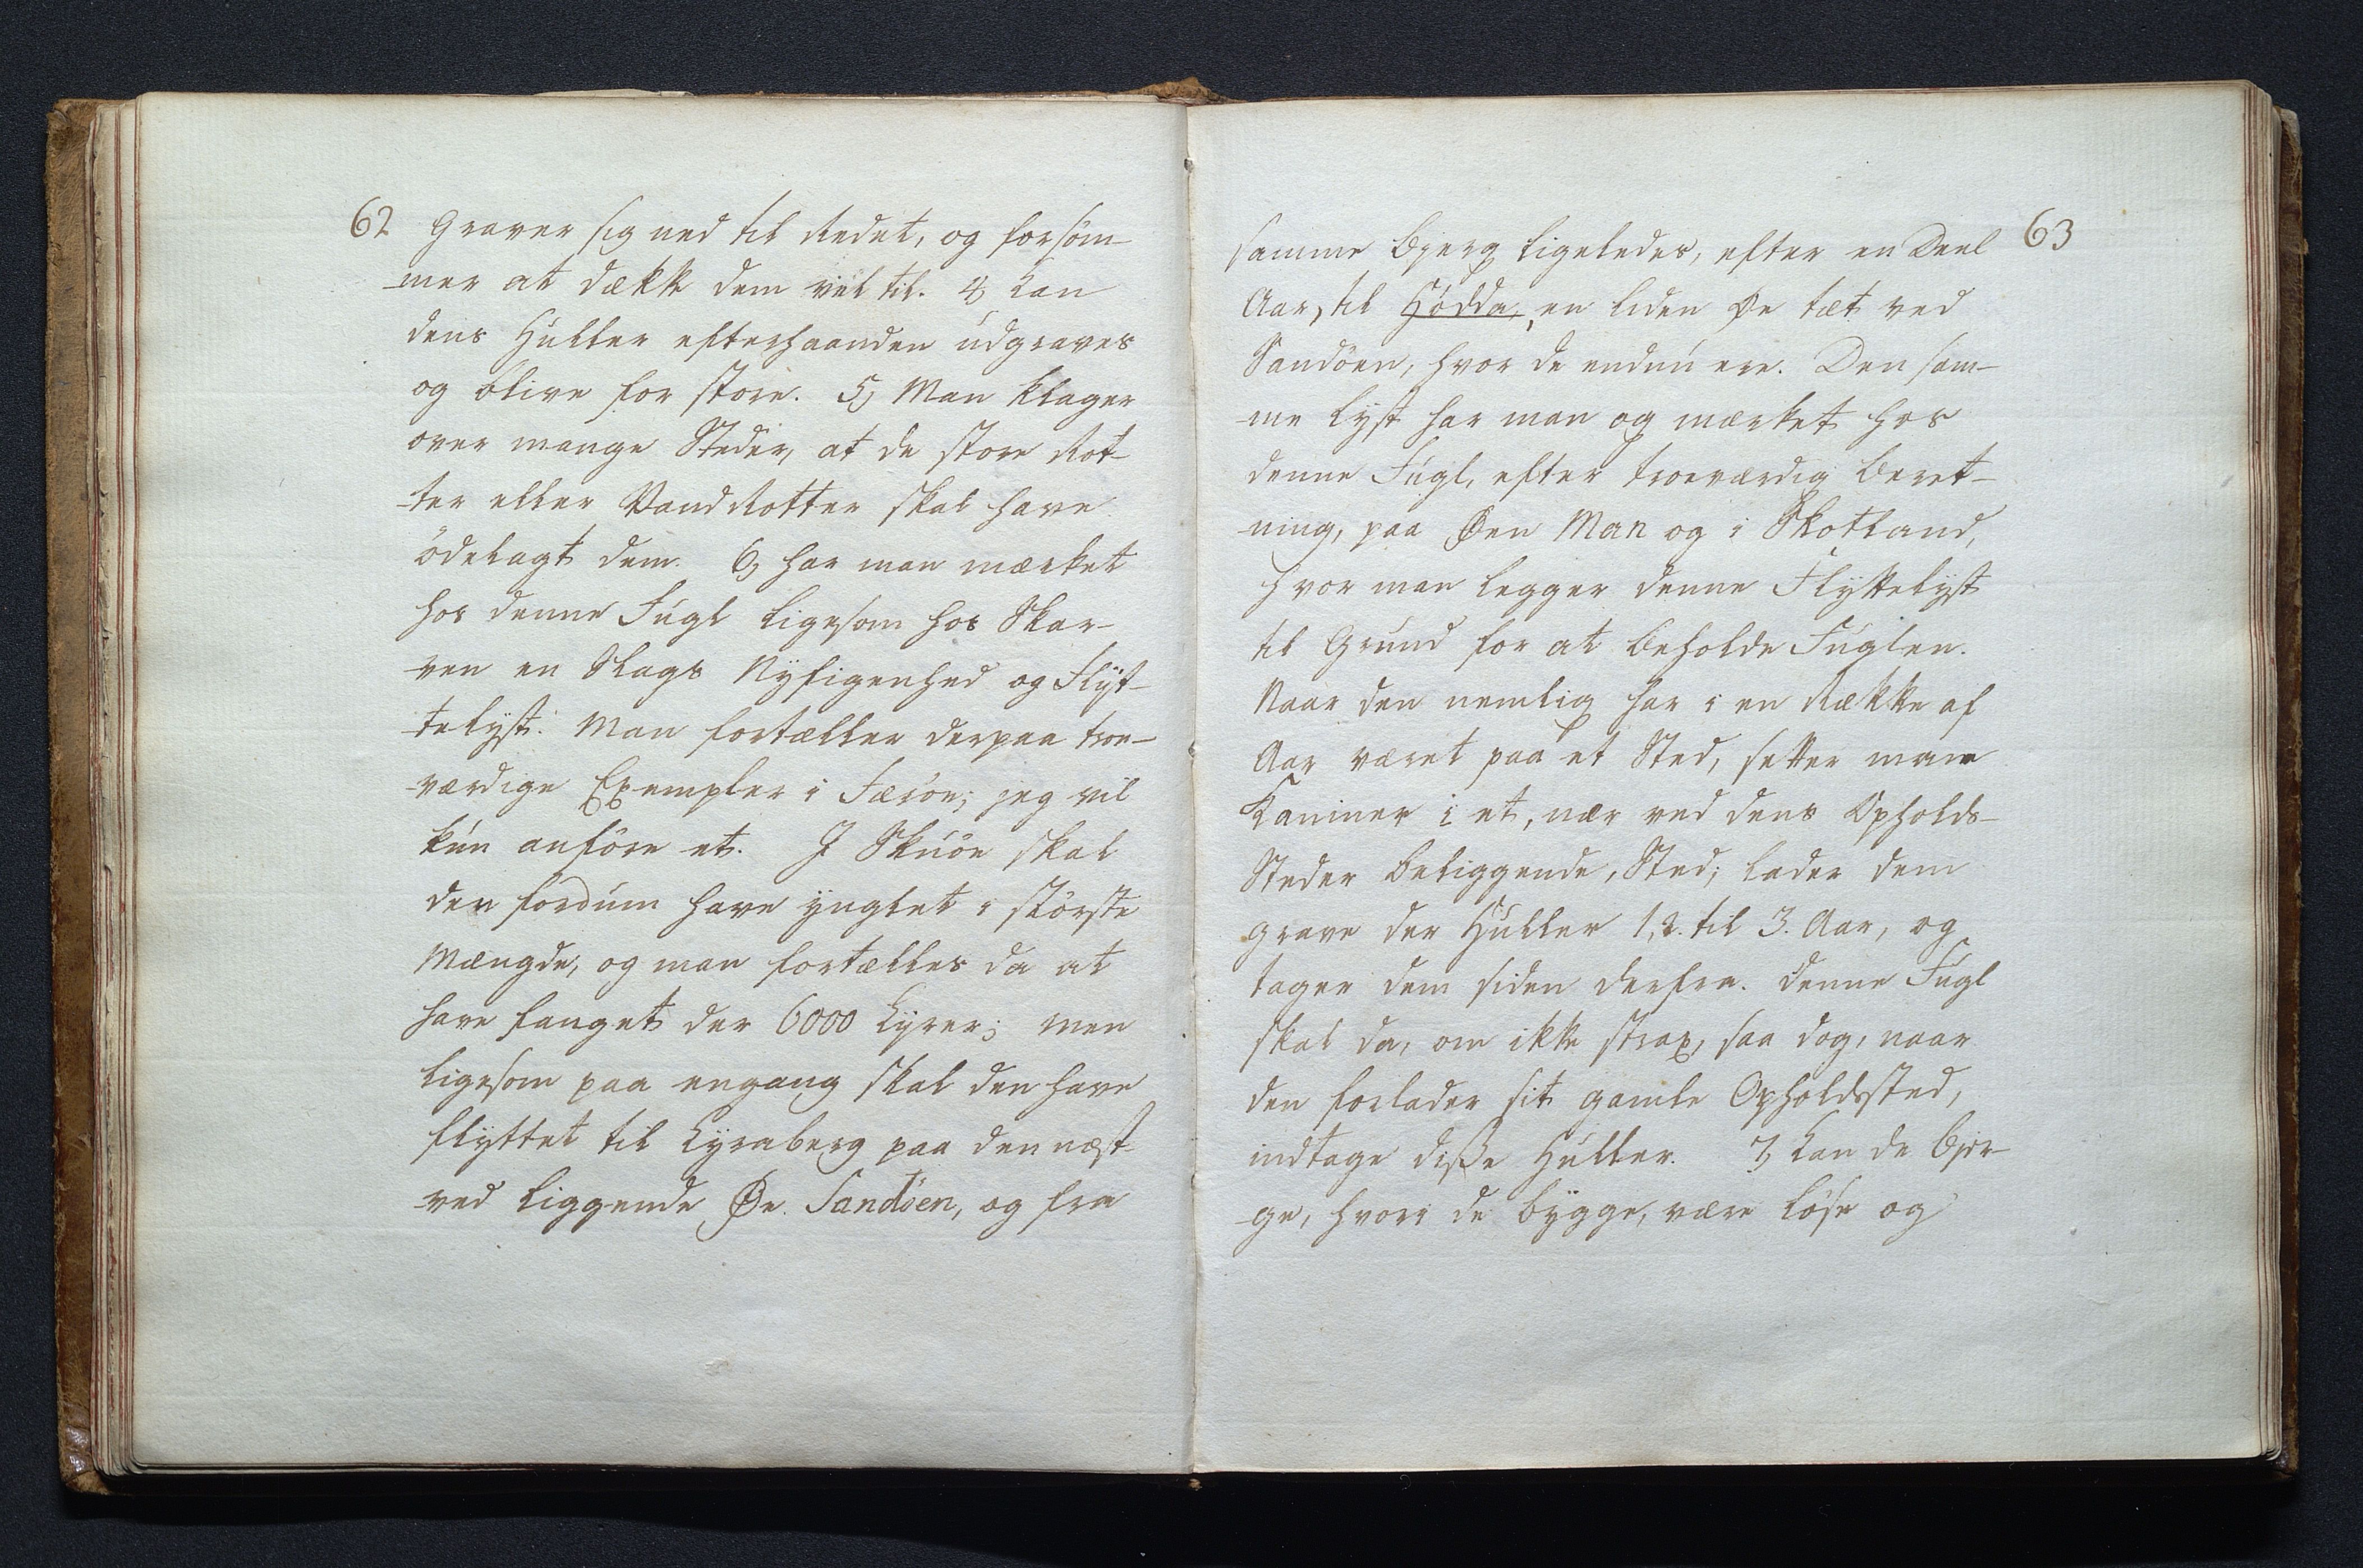 62
Graver sig ned til Redet, og forsöm-
mer at dække dem vel til. 4, Kan
dens Huller efterhaanden udgraves
og blive for store. 5, Man klager
over mange Steder, at de store Rot-
ter eller Vand Rotter skal have
ödelagt dem. 6, har man mærket
hos denne Fugl ligesom hos Skar-
ven en Slags Nyfigenhed og Flyt-
telyst. Man fortæller derpaa troe-
værdige Exempler i Færöe; jeg vil
kun anföre et. I Skuöe skal
den fordum have ynglet i störste
Mængde, og man fortælles da at
have fanget der 6000 Lyrer; men
ligesom paa engang skal den have
flyttet til Lyraberg paa den næst-
ved liggende Øe Sandöen, og fra
63
samme Bjerg ligeledes, efter en Deel
Aar, til Hödda, en liden Øe tæt ved
Sandöen, hvor de endnu ere. Den sam-
me Lyst har man og mærket hos
denne Fugl, efter troeværdig Beret-
ning, paa Øen Man og i Skotland,
hvor man legger denne Flyttelyst
til Grund for at beholde Fuglen.
Naar den nemlig har i en Række af
Aar været paa et Sted, setter man
Kaniner i et, nær ved dens Opholds-
Steder beliggende, Sted; lader dem
grave der Huller 1, 2. til 3. Aar, og
tager dem siden derfra. Denne Fugl
skal da, om ikke strax, saa dog, naar
den forlader sit gamle Opholdssted,
indtage disse Huller. 7, Kan de Bjer-
ge, hvori de bygge, være löse og